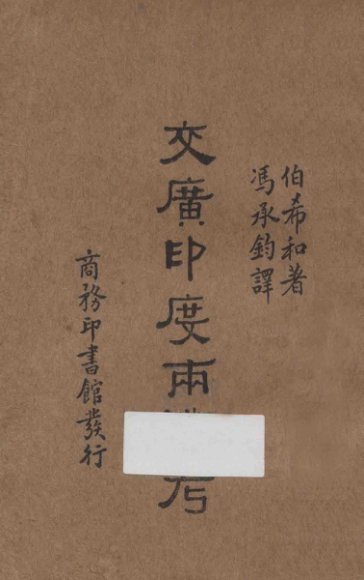 伯希和著
馮承鈞譯
交廣印度兩
商務印書館發行